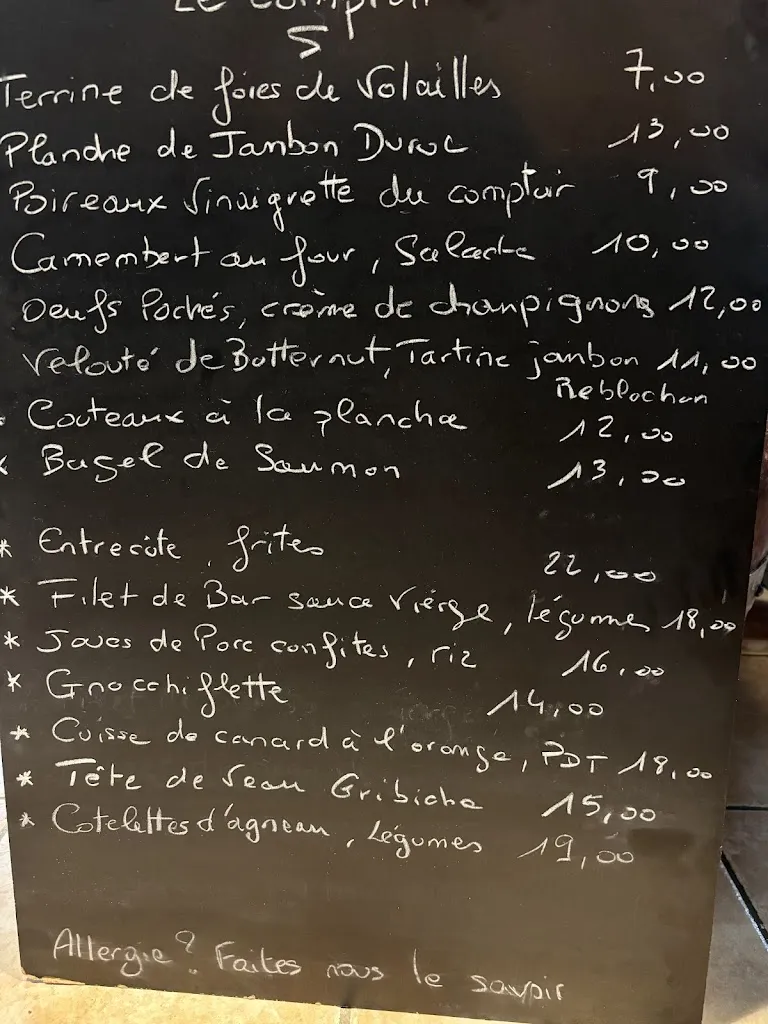 Le Comptoir
5
Terrine de foies de Volailles 7,00
Planche de Jambon Duroc 13,00
Poireaux Vinaigrette du comptoir 9,00
Camembert au four, Salade 10,00
Oeufs Pochés, crème de champignons 12,00
Velouté de Butternut, Tartine jambon 11,00
Reblochon
Couteaux à la plancha 12,00
* Bagel de Saumon 13,00
* Entrecôte, frites 22,00
* Filet de Bar sauce Vierge, légumes 18,00
* Joues de Porc confites, riz 16,00
* Gnocchiflette 14,00
* Cuisse de canard à l'orange, PDT 18,00
* Tête de Veau Gribiche 15,00
* Cotelettes d'agneau, Légumes 19,00
Allergie? Faites nous le savoir